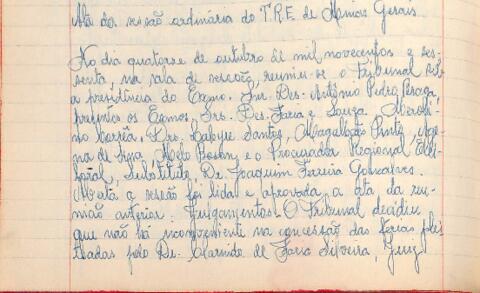 Ata da sessão ordinária do T.R.E. de Minas Gerais
No dia quatorze de outubro de mil novecentos e ses-
senta, na sala de sessões, reuniu-se o Tribunal sob
a presidência do Exmo. Snr. Des. Antônio Pedro Braga,
presentes os Exmos. Srs. Des. Faria e Souza, Merolí-
no Corrêa, Drs. Laboyne Santos, Magalhães Pinto,
na de Lima, e o Procurador Regional Elei-
toral, substituto, Dr. Joaquim Ferreira Gonçalves.
Aberta a sessão foi lida e aprovada a ata da reu-
nião anterior. Julgamentos. O Tribunal decidiu
que não há inconveniente na concessão das férias plei-
teadas pelo Dr. de Faria Silveira, Juiz